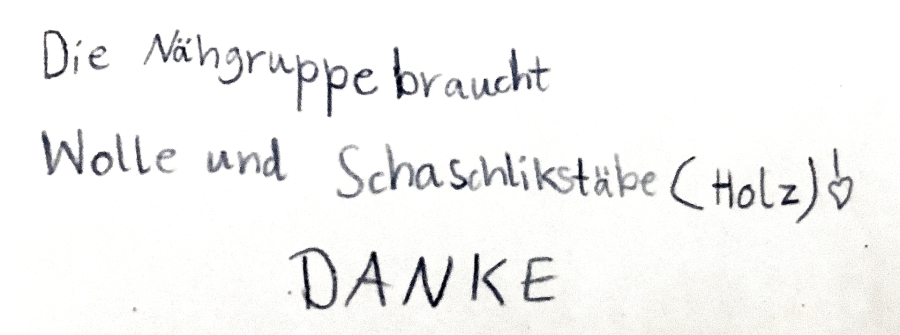 Die Nähgruppe braucht
Wolle und Schaschlikstäbe (Holz)!
DANKE